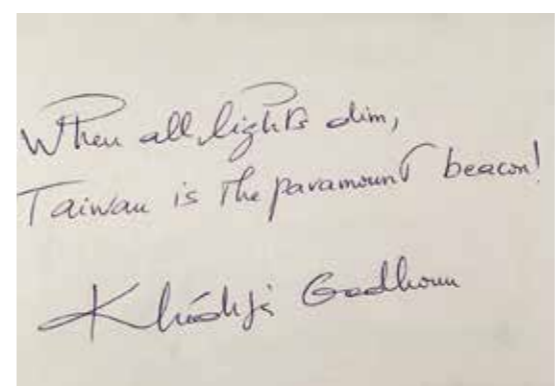 When all lights dim,
Taiwan is the paramount beacon!
Khédija Gadhoum